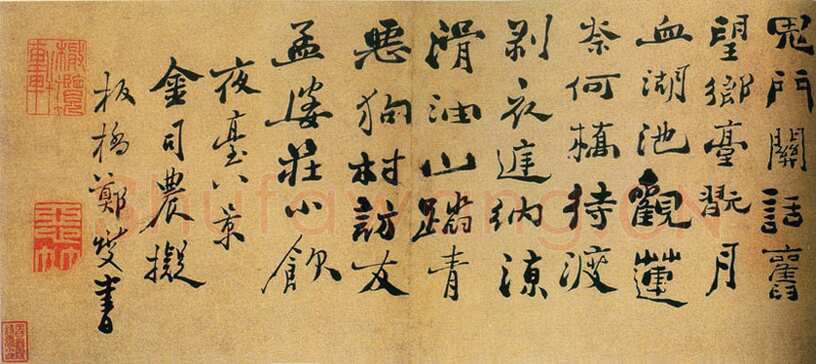 鬼門關話舊
望鄉臺翫月
血湖池觀蓮
奈何橋待渡
剥衣庭納凉
滑油山踏青
悪狗村訪友
孟婆莊小飲
夜臺八景
金司農擬
板橋鄭燮書